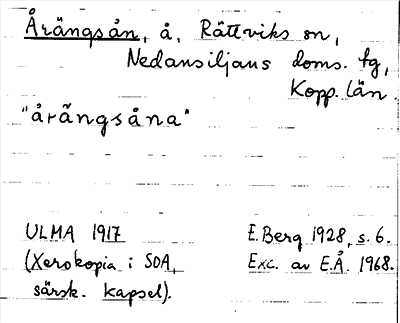 Årängsån, å, Rättviks sn,
Nedansiljans doms. tg,
Kopp. län.
"årängsåna"
ULMA 1917
(Xerokopia i SOA,
särsk. kapsel).
E. Berg 1928, s. 6.
Exc. av E.Å. 1968.